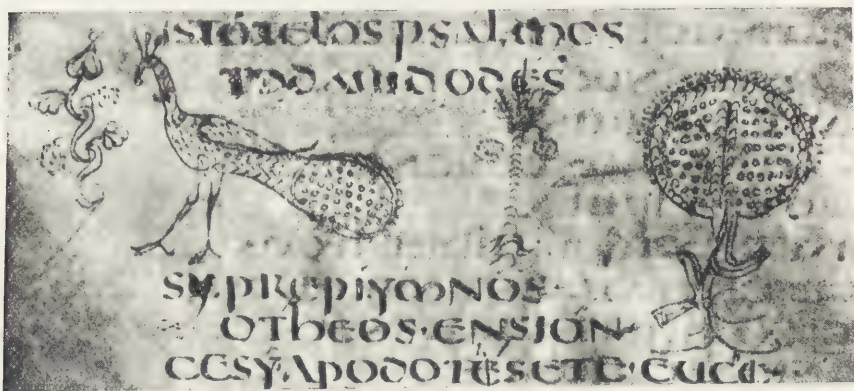 ISTOTELOS PSALMOS
TODAUIDODES
SY·PREPIYMNOS·
OTHEOS·ENSION
CESYAPODOTESETE·EUCE